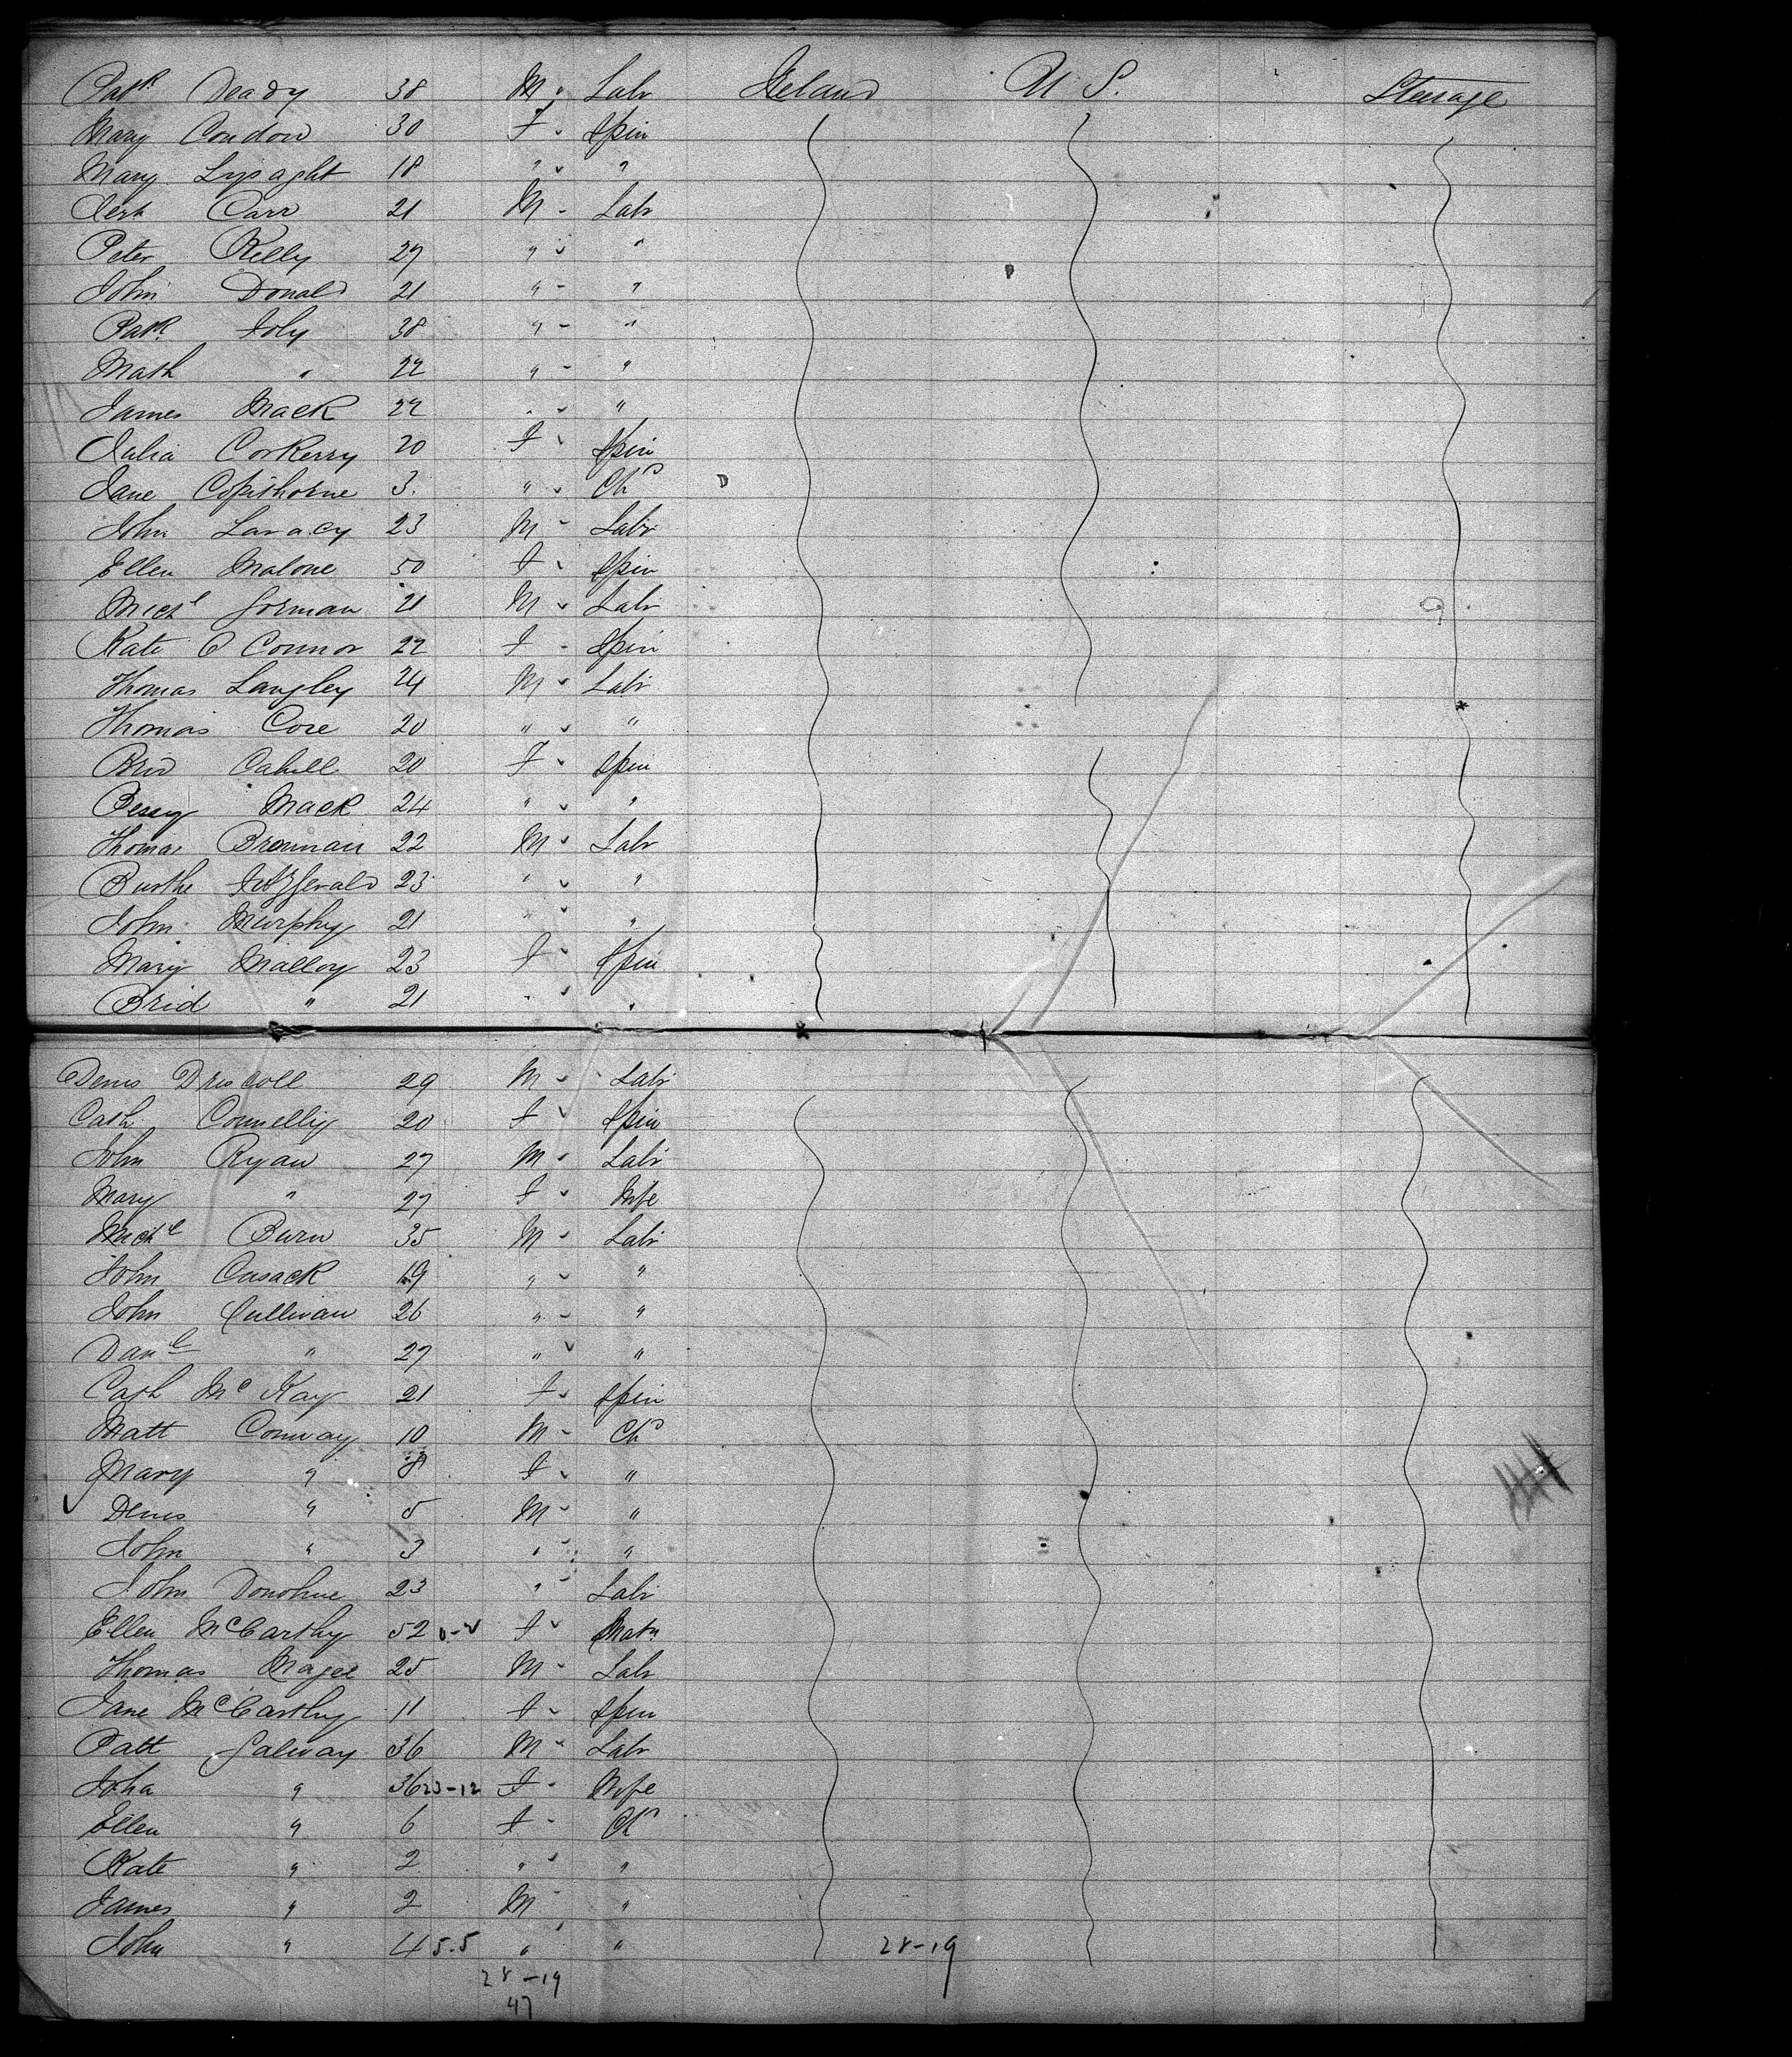 Patk Deady 38 M Labr Ireland U S. Steerage
Mary Condon 30 F Spin
Mary Lysaght 18 " "
Carr 21 M Labr
Peter Kelly 27 " "
John Donald 21 " "
Patk. Foly 38 " "
Math " 22 " "
James Mack 22 " "
Julia Corkerry 20 F Spin
Jane Copithorne 3. " Chd
John Laracy 23 M Labr
Ellen Malone 50 F Spin
Michl Gorman 21 M Labr
Kate O Connor 22 F Spin
Thomas Langley 24 M Labr
Thomas 20 " "
Brid Cahill 20 F Spin
Bessy Mack 24 " "
Thomas Brennan 22 M Labr
Fitzgerald 23 " "
John Murphy 21 " "
Mary Malloy 23 F Spin
Brid " 21 " "
Denis Driscoll 29 M Labr
Cath Connelly 20 F Spin
John Ryan 27 M Labr
Mary " 27 F Wife
Michl Burn 35 M Labr
John Cusack 19 " "
John Sullivan 26 " "
Danl " 27 " "
Cath Mc Kay 21 F Spin
Matt Conway 10 M Chd
Mary " 8 F "
Denis " 5 M "
John " 3 " "
John Donohue 23 " Labr
Ellen McCarthy 52 F Matn
Thomas Magee 25 M Labr
Jane McCarthy 11 F Spin
Patt Galway 36 M Labr
Joha " 36 23-12 F Wife
Ellen " 6 F Chd
Kate " 2 " "
James " 2 M "
John " 4 5-5 " " 28-19
28-19
47